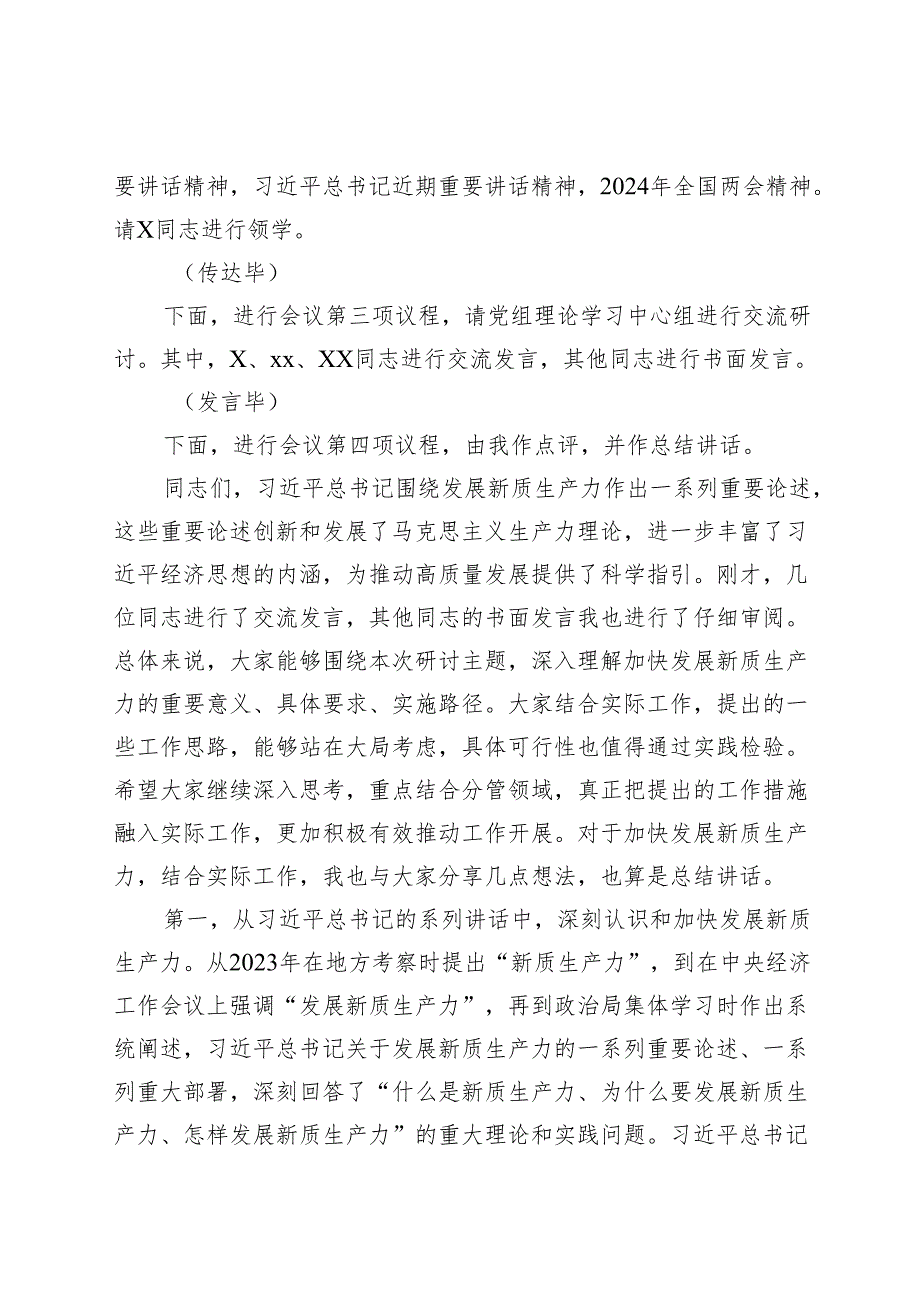 要讲话精神，习近平总书记近期重要讲话精神，2024年全国两会精神。
请X同志进行领学。
（传达毕）
下面，进行会议第三项议程，请党组理论学习中心组进行交流研
讨。其中，X、xx、XX同志进行交流发言，其他同志进行书面发言。
（发言毕）
下面，进行会议第四项议程，由我作点评，并作总结讲话。
同志们，习近平总书记围绕发展新质生产力作出一系列重要论述，
这些重要论述创新和发展了马克思主义生产力理论，进一步丰富了习
近平经济思想的内涵，为推动高质量发展提供了科学指引。刚才，几
位同志进行了交流发言，其他同志的书面发言我也进行了仔细审阅。
总体来说，大家能够围绕本次研讨主题，深入理解加快发展新质生产
力的重要意义、具体要求、实施路径。大家结合实际工作，提出的一
些工作思路，能够站在大局考虑，具体可行性也值得通过实践检验。
希望大家继续深入思考，重点结合分管领域，真正把提出的工作措施
融入实际工作，更加积极有效推动工作开展。对于加快发展新质生产
力，结合实际工作，我也与大家分享几点想法，也算是总结讲话。
第一，从习近平总书记的系列讲话中，深刻认识和加快发展新质
生产力。从2023年在地方考察时提出“新质生产力”，到在中央经济
工作会议上强调“发展新质生产力”，再到政治局集体学习时作出系
统阐述，习近平总书记关于发展新质生产力的一系列重要论述、一系
列重大部署，深刻回答了“什么是新质生产力、为什么要发展新质生
产力、怎样发展新质生产力”的重大理论和实践问题。习近平总书记